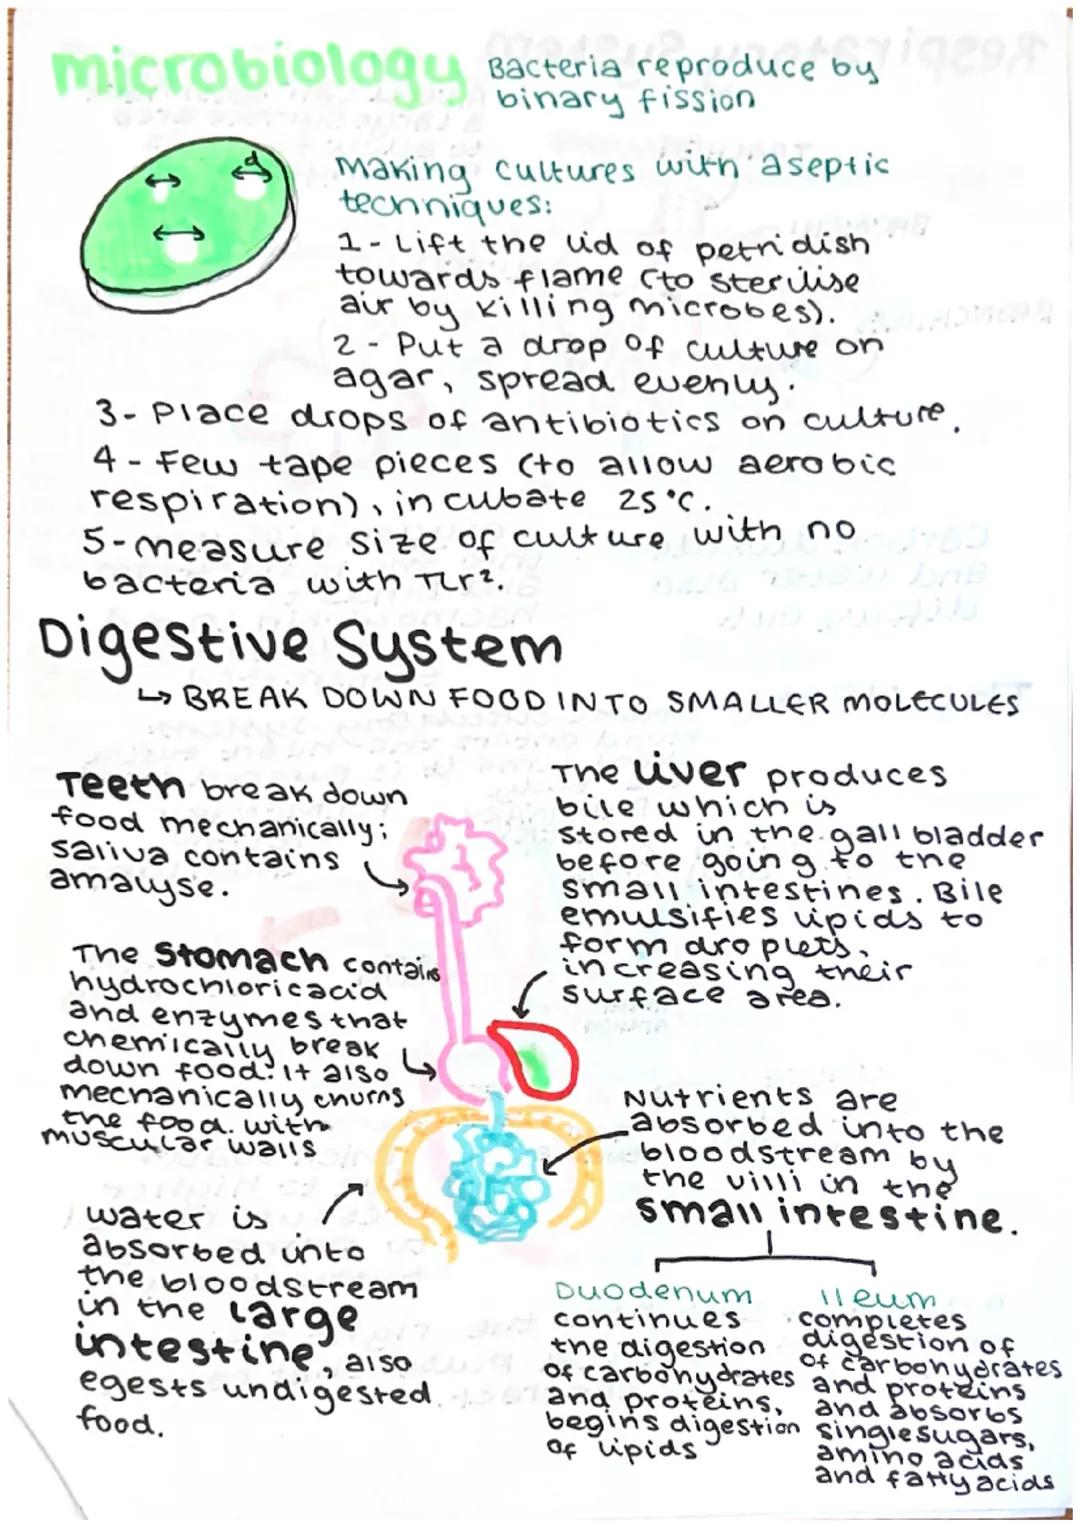 microbiology
Bacteria reproduce by
binary fission
d
Making cultures with aseptic
techniques:
1 - Lift the lid of petri dish
towards flame (to sterilise
air by killing microbes).
2 - Put a drop of culture on
agar, spread evenly.
3 - Place drops of antibiotics on culture.
4 - Few tape pieces (to allow aerobic
respiration), incubate 25°C.
5 - measure size of culture with no
bacteria with πr².
Digestive System
↳ BREAK DOWN FOOD INTO SMALLER MOLECULES
Teeth break down
food mechanically;
saliva contains
amalyse.
The liver produces
bile which is
stored in the gall bladder
before going to the
small intestines. Bile
emulsifies lipids to
form droplets,
increasing their
surface area.
The Stomach contains
hydrochloric acid
and enzymes that
chemically break
down food. It also
mechanically churns
the food with
muscular walls
Nutrients are
absorbed into the
bloodstream by
the villi in the
small intestine.
water is
absorbed into
the bloodstream
in the large
intestine, also
egests undigested
food.
Duodenum
continues
the digestion
of carbohydrates
and proteins,
begins digestion
of lipids
Ileum
completes
digestion of
of carbohydrates
and proteins
and absorbs
single sugars,
amino acids
and fatty acids